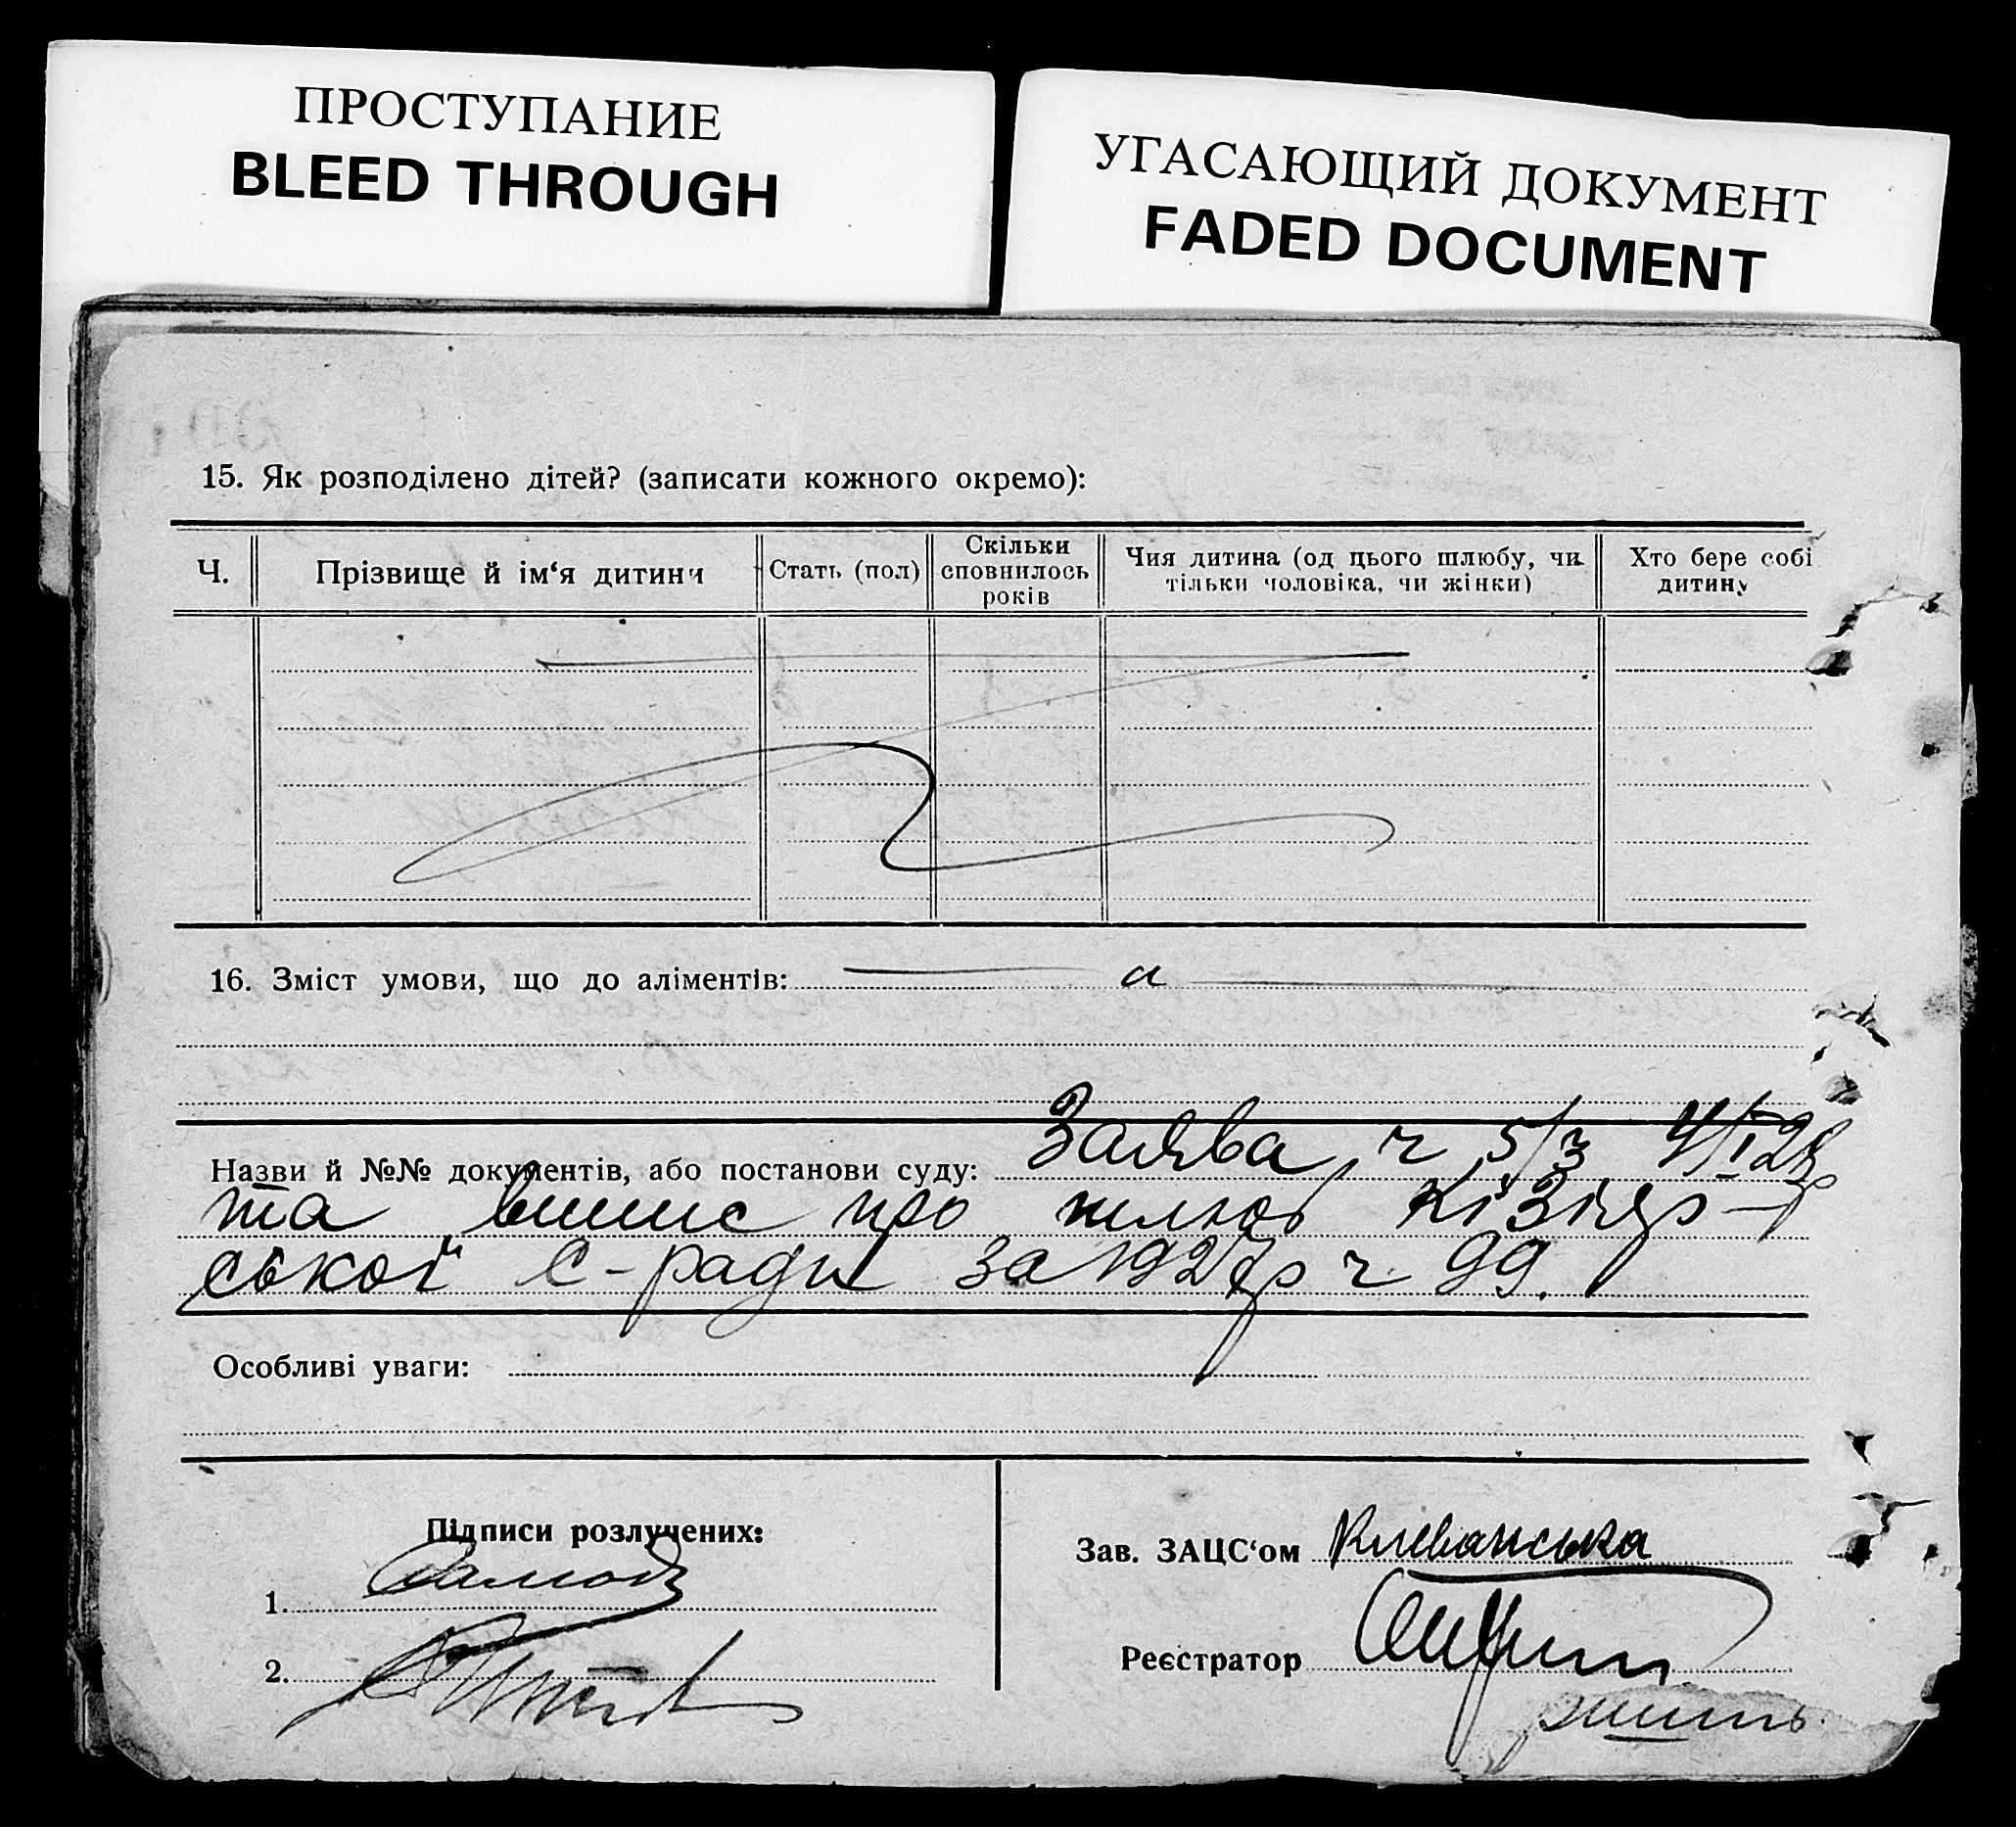 ПРОСТУПАНИЕ
BLEED THROUGH
УГАСАЮЩИЙ ДОКУМЕНТ
FADED DOCUMENT
15. Як розподілено дітей? (записати кожного окремо):
Ч.
Прізвище й ім‘я дитини
Стать (пол)
Скільки
сповнилось
років
Чия дитина (од цього шлюбу, чи
тільки чоловіка, чи жінки)
Хто бере собі
дитину
16. Зміст умови, що до аліментів:
Назви й №№ документів, або постанови суду: Заява ч 5/3 4/I 28р
та випис про шлюб
ської С-ради за 1927р ч 99.
Особливі уваги:
Підписи розлучених:
1.
2.
Зав. ЗАЦС‘ом Клеванська
Реєстратор